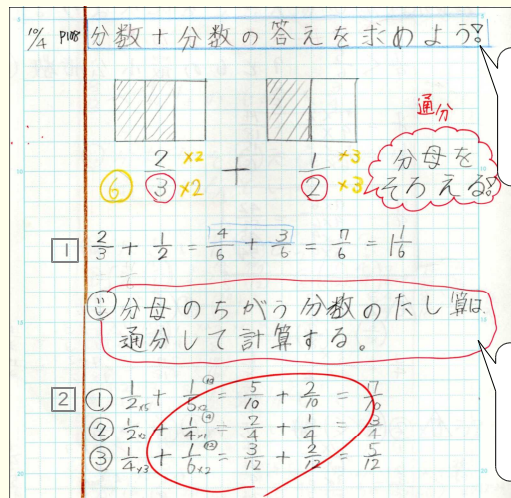 10/4 P108 分数+分数の答えを求めよう!
通分
2/3 ×2 ×2 + 1/2 ×3 ×3
6
分母をそろえる!
1 2/3 + 1/2 = 4/6 + 3/6 = 7/6 = 1 1/6
分母のちがう分数のたし算は、
通分して計算する。
2 ① 1/2 ×5 + 1/5 ×2 ⑩ = 5/10 + 2/10 = 7/10
② 1/2 ×2 + 1/4 ×1 ④ = 2/4 + 1/4 = 3/4
③ 1/4 ×3 + 1/6 ×2 ⑫ = 3/12 + 2/12 = 5/12